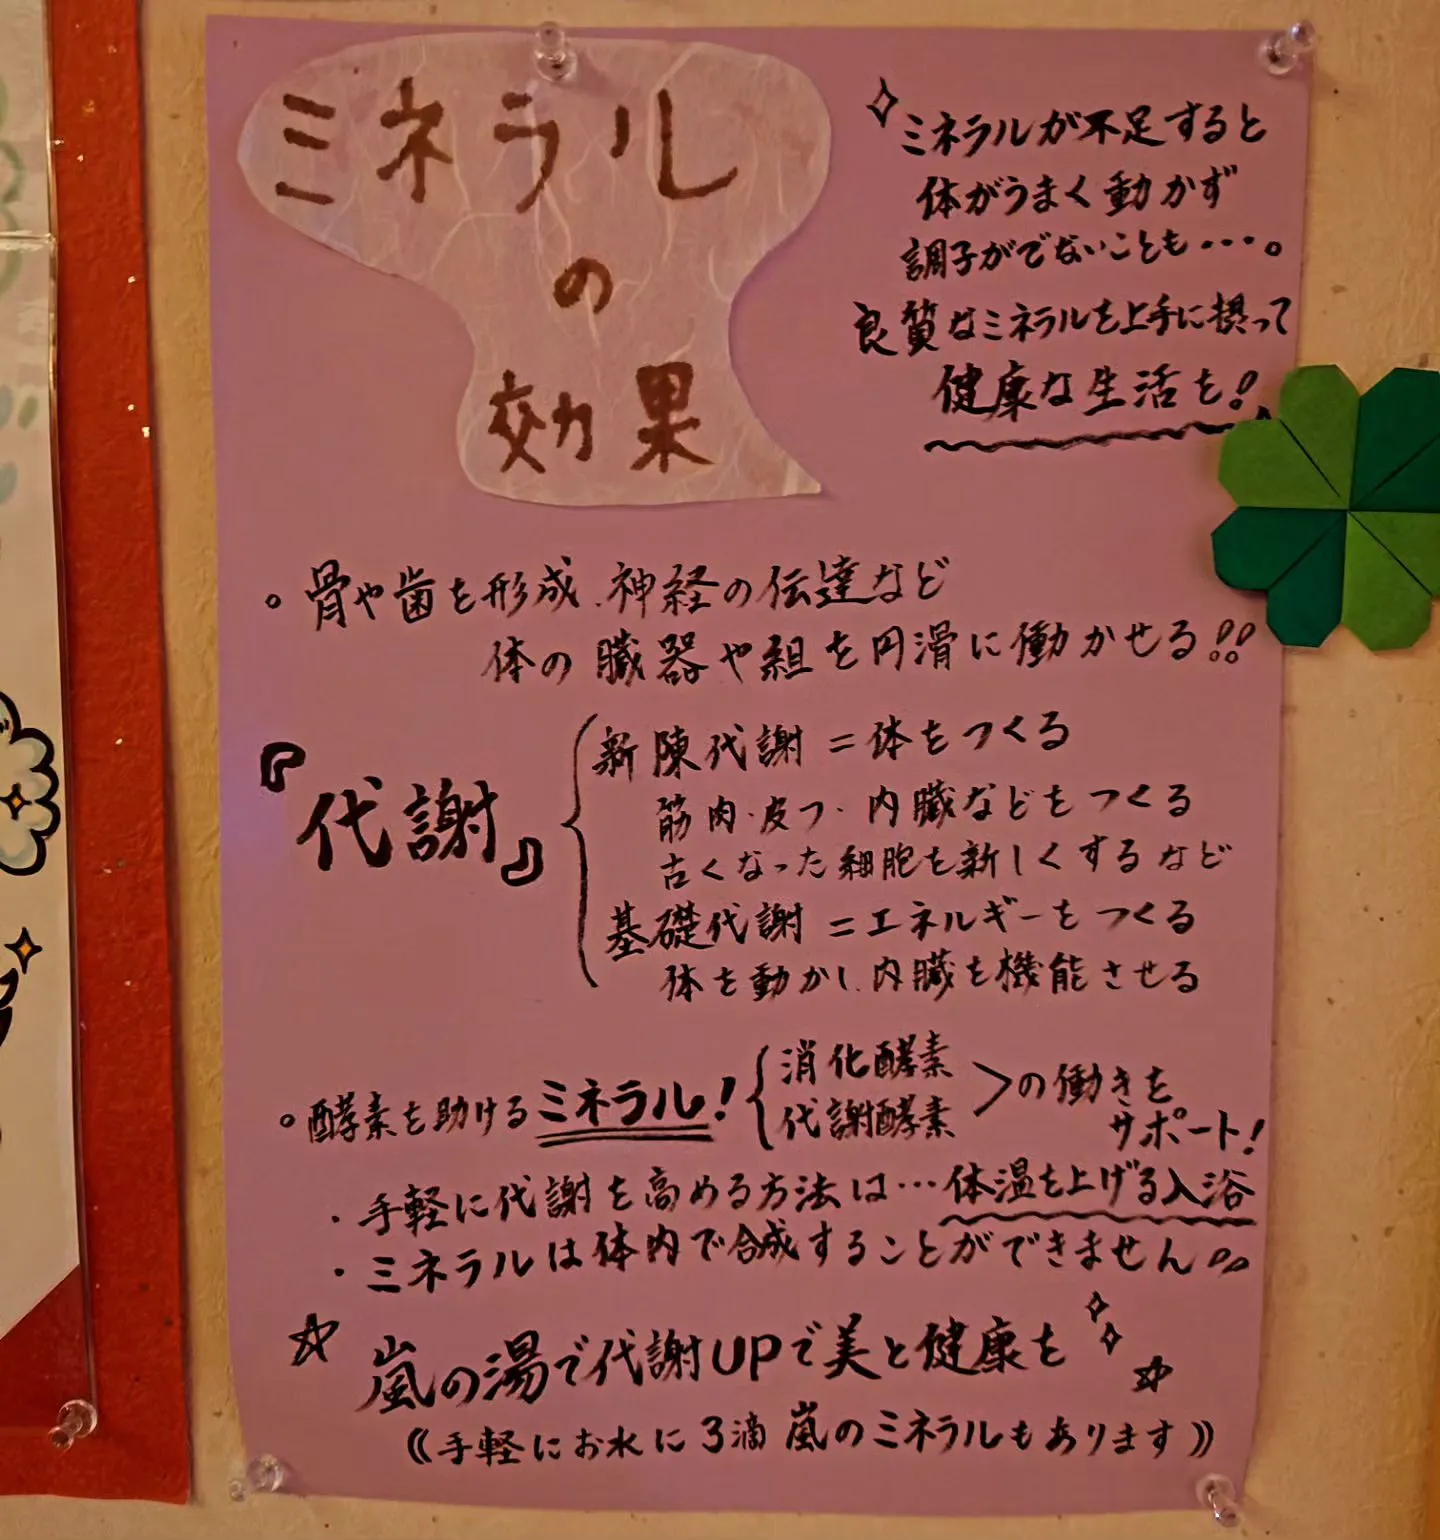 ミネラル
の
効果
ミネラルが不足すると
体がうまく動かず
調子がでないことも・・・。
良質なミネラルを上手に摂って
健康な生活を!
。骨や歯を形成、神経の伝達など
体の臓器や組を円滑に働かせる!!
『代謝』
新陳代謝=体をつくる
筋肉・皮フ・内臓などをつくる
古くなった細胞を新しくするなど
基礎代謝=エネルギーをつくる
体を動かし、内臓を機能させる
。酵素を助けるミネラル!
消化酵素
代謝酵素
の働きを
サポート!
・手軽に代謝を高める方法は…体温を上げる入浴
・ミネラルは体内で合成することができません!!
☆嵐の湯で代謝UPで美と健康を☆
《手軽にお水に3滴 嵐のミネラルもあります》